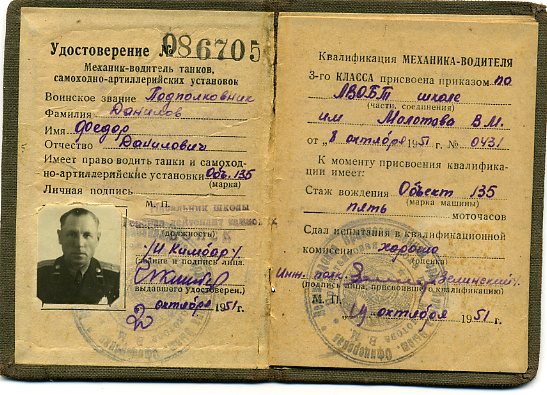 Удостоверение № 086705
Механик-водитель танков,
самоходно-артиллерийских установок
Воинское звание Подполковник
Фамилия Данилов
Имя Федор
Отчество Данилович
Имеет право водить танки и самоход-
но-артиллерийские установки Об. 135
(марка)
Личная подпись
М. П.
(должность)
/И Кимбар/
(звание и подпись лица,
выдавшего удостоверен.)
2 октября 1951 г.
Квалификация МЕХАНИКА-ВОДИТЕЛЯ
3-го КЛАССА присвоена приказом по
ЛВОБТ школе
(части, соединения)
им Молотова В.М.
от „8 октября 1951 г. № 0431
К моменту присвоения квалифика-
ции имеет:
Стаж вождения Объект 135
(марка машины)
пять моточасов
Сдал испытания в квалификационной
комиссии хорошо
(оценка)
Инж. полк. Зелинский
(подпись лица, присвоившего квалификацию)
М. П.
19 октября 1951 г.